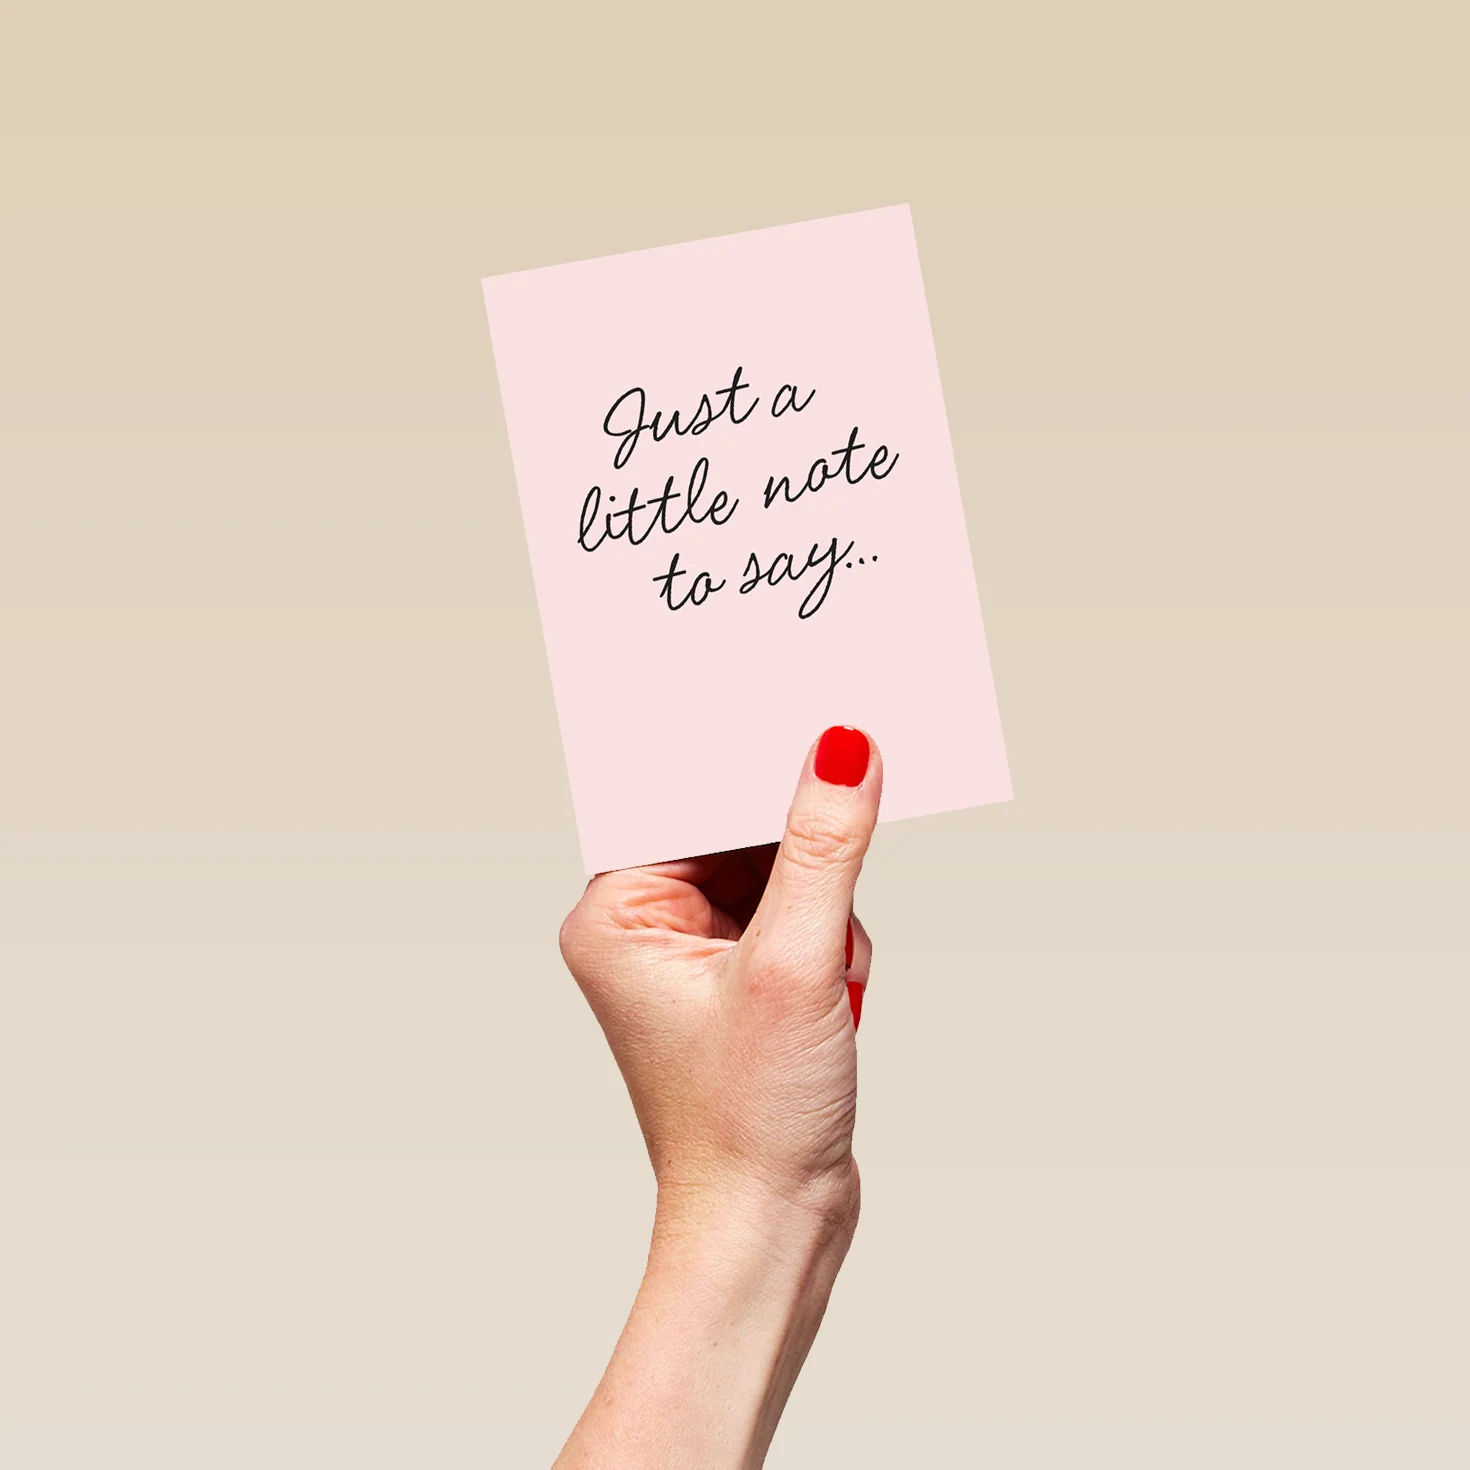 Just a
little note
to say...